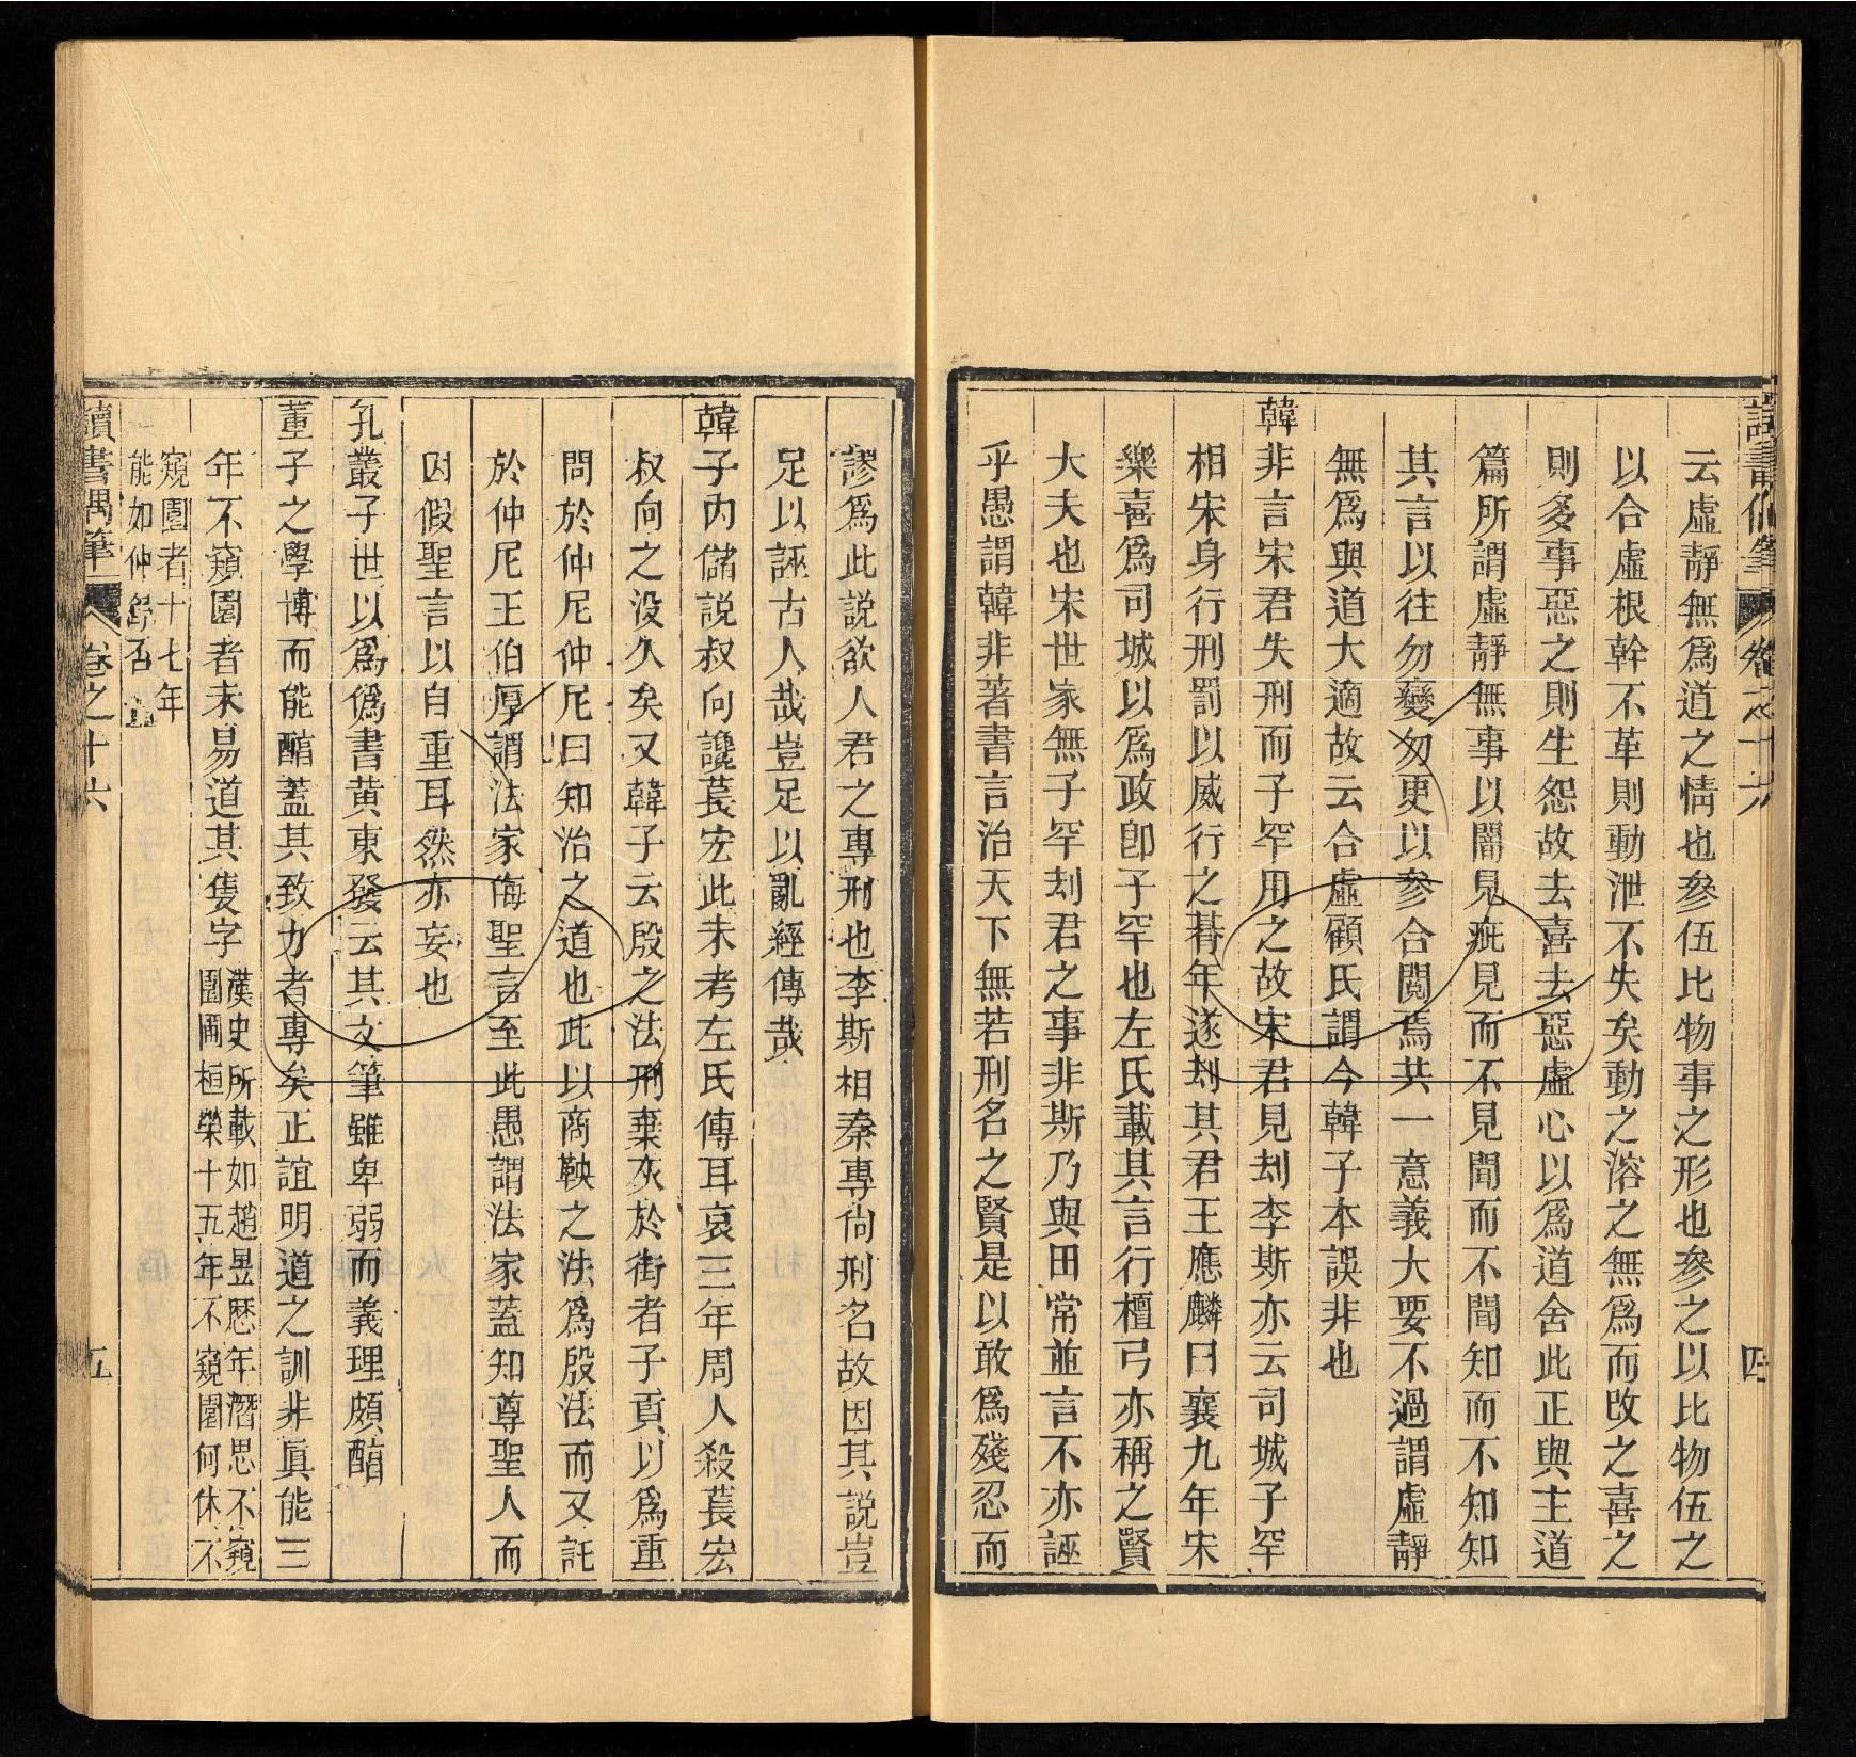 讀書偶筆 卷之十六 四
云虛靜無爲道之情也參伍比物事之形也參之以比物伍之
以合虛根幹不革則動泄不失矣動之溶之無爲而攺之喜之
則多事惡之則生怨故去喜去惡虛心以爲道舍此正與主道
篇所謂虛靜無事以闇見疵見而不見聞而不聞知而不知知
其言以往勿變勿更以參合閱焉共一意義大要不過謂虛靜
無爲與道大適故云合虛顧氏謂今韓子本誤非也
韓非言宋君失刑而子罕用之故宋君見刦李斯亦云司城子罕
相宋身行刑罰以威行之朞年遂刦其君王應麟曰襄九年宋
樂喜爲司城以爲政卽子罕也左氏載其言行檀弓亦稱之賢
大夫也宋世家無子罕刦君之事非斯乃與田常並言不亦誣
乎愚謂韓非著書言治天下無若刑名之賢是以敢爲殘忍而
謬爲此説欲人君之專刑也李斯相秦專尙刑名故因其説豈
足以誣古人哉豈足以亂經傳哉
韓子內儲説叔向讒萇宏此未考左氏傳耳哀三年周人殺萇宏
叔向之没久矣又韓子云殷之法刑棄灰於街者子貢以爲重
問於仲尼仲尼曰知治之道也此以商鞅之法爲殷法而又託
於仲尼王伯厚謂法家侮聖言至此愚謂法家蓋知尊聖人而
因假聖言以自重耳然亦妄也
孔叢子世以爲僞書黄東發云其文筆雖卑弱而義理頗醕
董子之學博而能醕蓋其致力者專矣正誼明道之訓非眞能三
年不窺園者未易道其隻字漢史所載如趙昱歷年潛思不窺
園圃桓榮十五年不窺園何休不
窺園者十七年
能如仲舒否
讀書偶筆 卷之十六 五